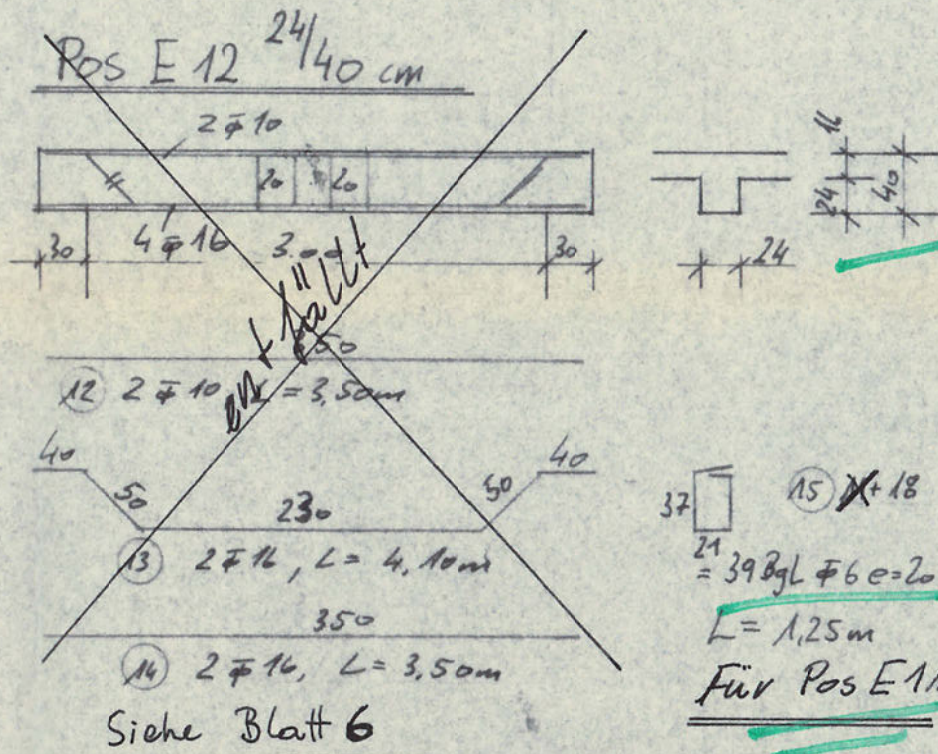 Pos E 12 24/40 cm
2 ⌀ 10
20 20
4 ⌀ 16
30 30
16
24
40
24
entfällt
12 2 ⌀ 10 = 3,50m
40 40
50 230 50
13 2 ⌀ 16, L = 4,10m
350
14 2 ⌀ 16, L = 3,50m
Siehe Blatt 6
37
21
15 + 18
= 39 Bgl ⌀ 6 e=20
L = 1,25m
Für Pos E 1